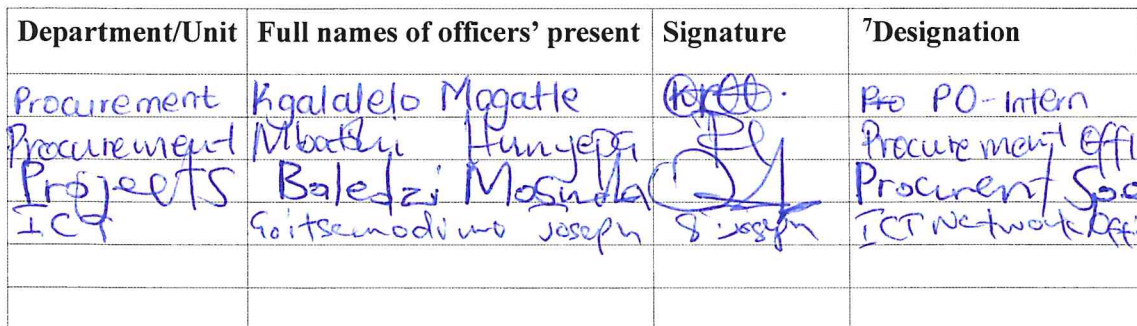 Department/Unit Full names of officers' present Signature ⁷Designation
Procurement Kgalalelo Mogatle PO-Intern
Procurement Mbatshi Hunyepa Procurement Offi
Projects Baledzi Procurent
ICT Goitsemodimo Joseph ICT Network Offi